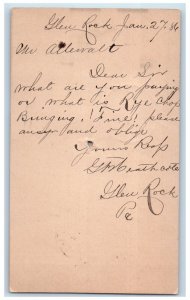 Glen Rock Jan. 27. 86
Mr Allewalt
Dear Sir
what are you paying
or what is Rye Chop
Bringing? Fine? please
answr and oblige
Yours Resp
G K Heathcote
Glen Rock
Pa